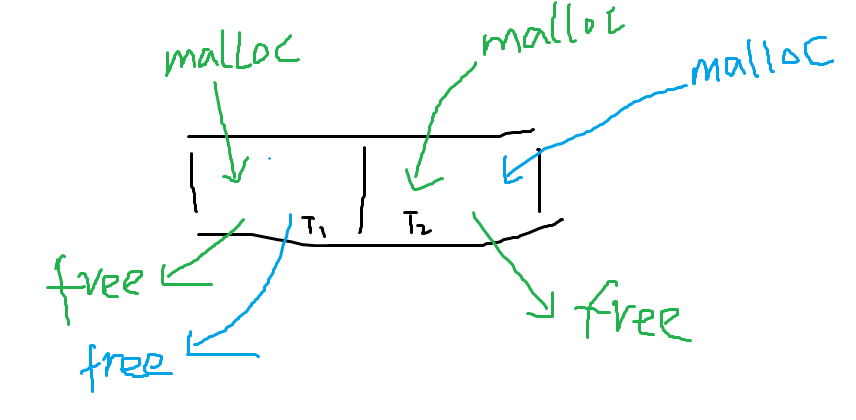 malloc
malloc
malloc
T1
T2
free
free
free